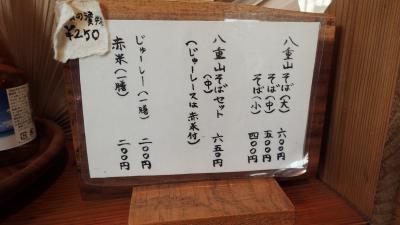 八重山そば(大) 六〇〇円
そば(中) 五〇〇円
そば(小) 四〇〇円
八重山そばセット 六五〇円
(中)
(じゅーしー又は赤米付)
じゅーしー(一膳) 二〇〇円
赤米(一膳) 二〇〇円
¥250